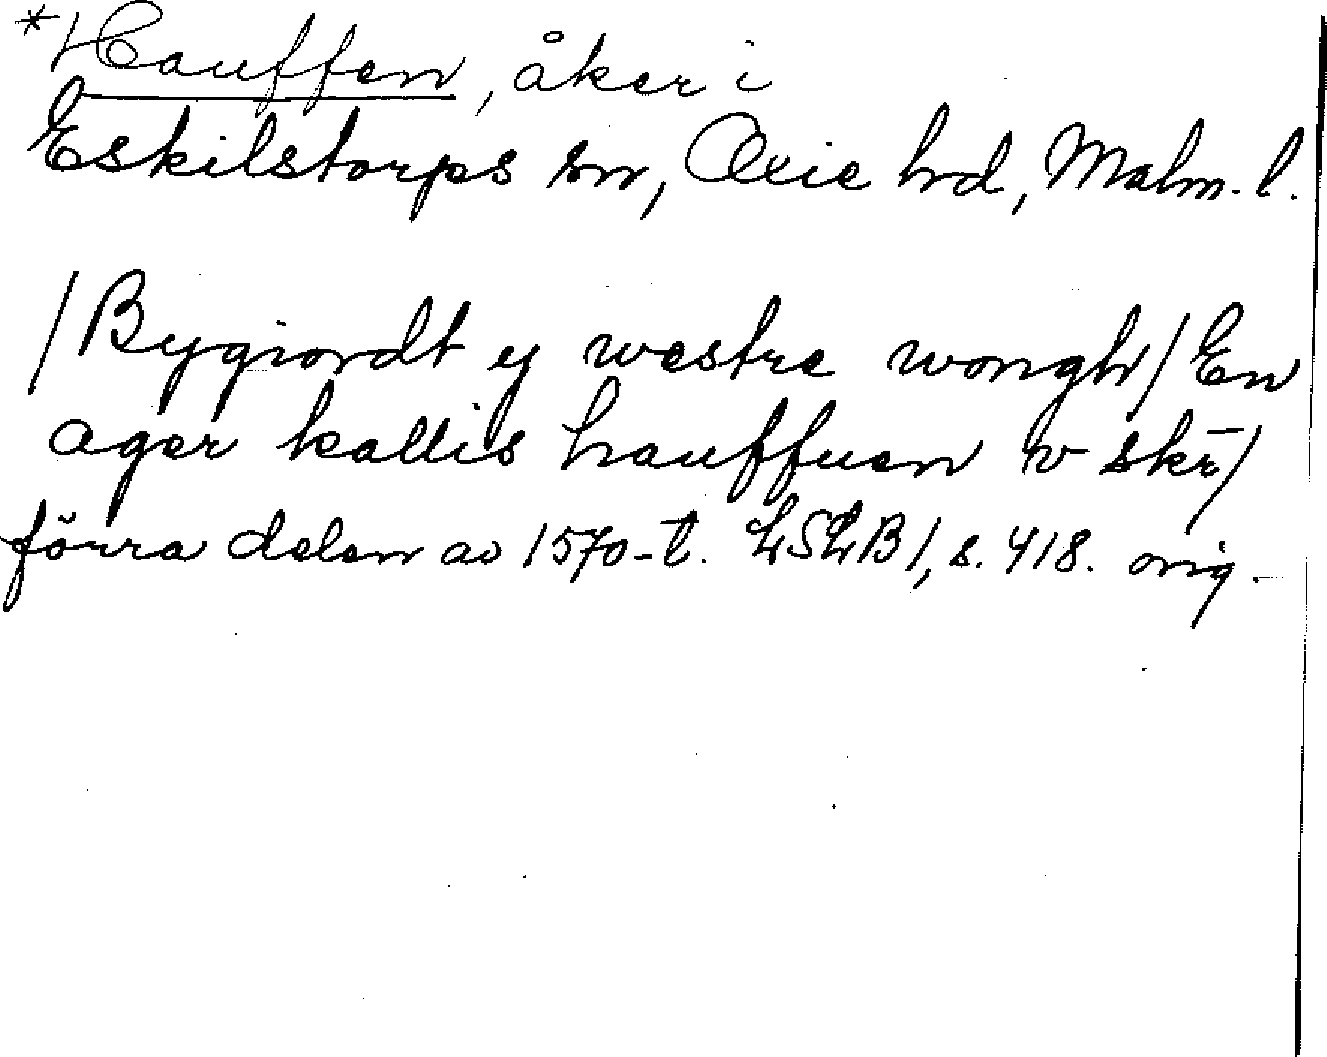 *Hauffen, åker i
Eskilstorps sn, Oxie hd, Malm. l.
/Bygiordt y westre wongh/ En
ager kallis hauffuen v skr̄/
förra delen av 1570-t. LSLB1, s. 418. orig.